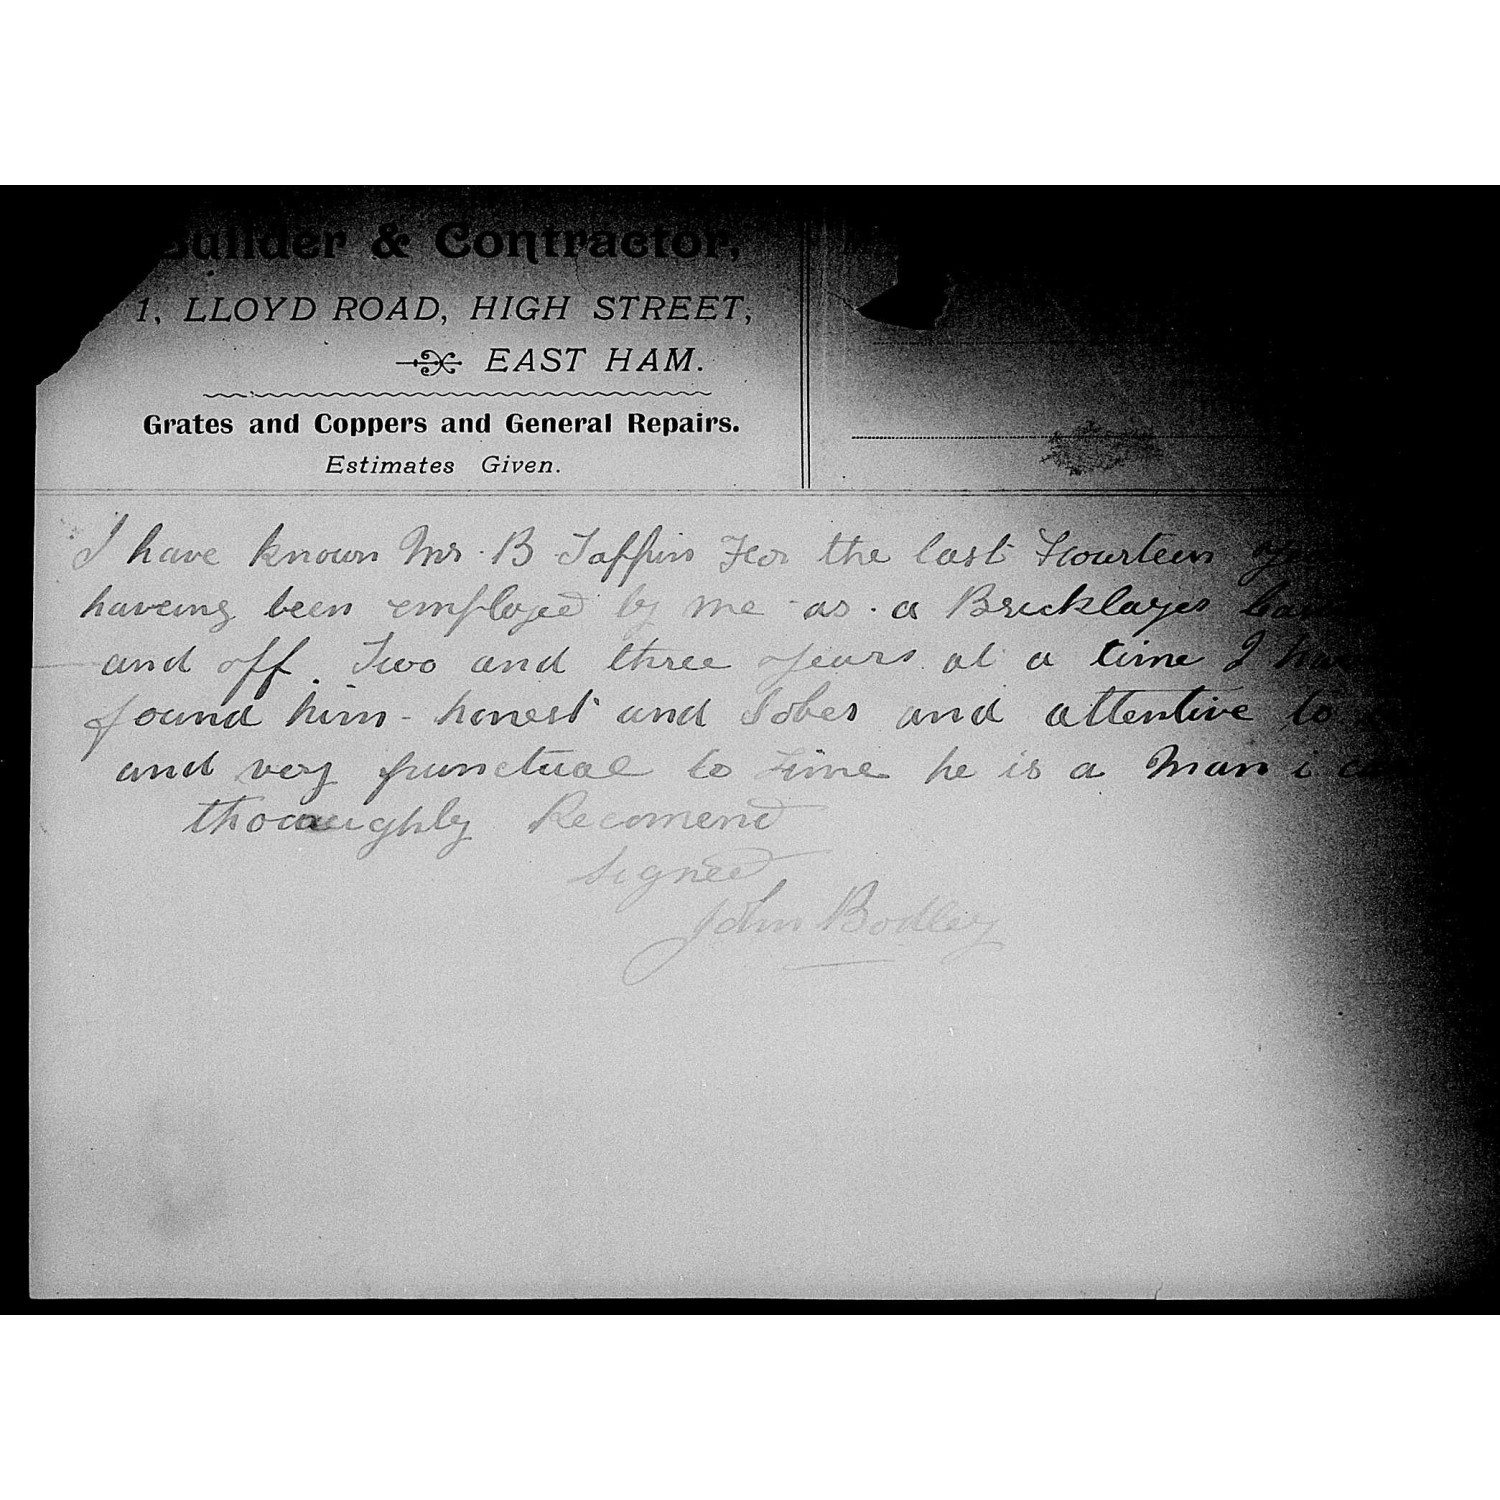 Builder & Contractor,
1, LLOYD ROAD, HIGH STREET,
EAST HAM.
Grates and Coppers and General Repairs.
Estimates Given.
I have known Mr. B Taffin For the last Fourteen
haveing been employed by me as a Bricklayer
and off. Two and three years at a time I have
found him - honest and Sober and attentive to
and very punctual to Time he is a Man i can
thoroughly Recomend
Signed
John Bodley